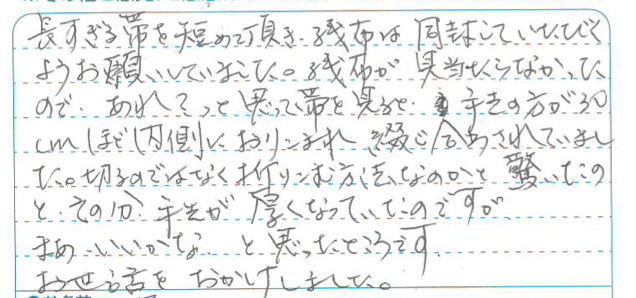 長すぎる帯を短めて頂き、残布は同封していただく
ようお願いしていました。残布が見当たらなかった
ので、あれ？っと思って帯を見ると、手先の方が30
cmほど内側におりこまれ綴じ合わされていまし
た。切るのではなく折りこむ方法なのかと驚いたの
と、その分、手先が厚くなっていたのですが、
まあ、いいかな と思ったところです。
お世話をおかけしました。